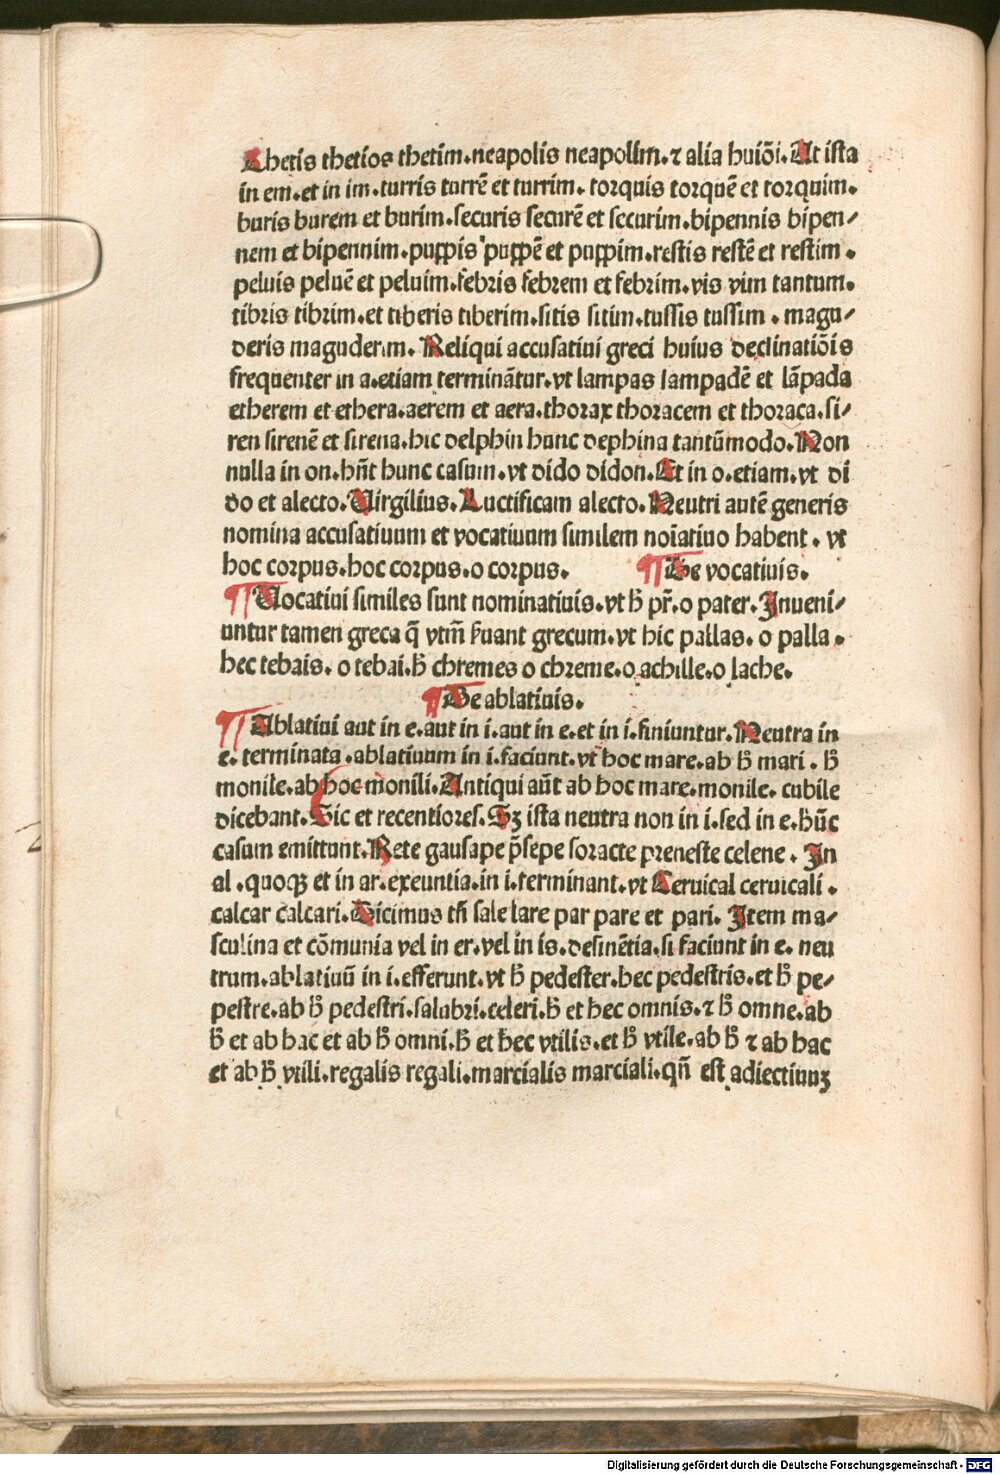 Thetis thetios thetim.neapolis neapolim.⁊ alia huiōi. At ista
in em.et in im.turris turrē et turrim. torquis torquē et torquim.
buris burem et burim.securis securē et securim.bipennis bipen/
nem et bipennim.puppis puppē et puppim.restis restē et restim.
peluis peluē et peluim.febris febrem et febrim.vis vim tantum.
tibris tibrim.et tiberis tiberim.sitis sitim.tussis tussim. magu/
deris maguderim. Reliqui accusatiui greci huius declinatiōis
frequenter in a.etiam terminātur.vt lampas lampadē et lāpada
etherem et ethera.aerem et aera.thorax thoracem et thoraca.si/
ren sirenē et sirena.hic delphin hunc dephina tantūmodo. Non
nulla in on.hn̄t hunc casum.vt dido didon.Et in o.etiam.vt di
do et alecto.Virgilius.Luctificam alecto.Neutri autē generis
nomina accusatiuum et vocatiuum similem noīatiuo habent. vt
hoc corpus.hoc corpus.o corpus.
¶ De vocatiuis.
¶ Vocatiui similes sunt nominatiuis.vt h̄ pr̄.o pater.Inueni/
untur tamen greca q̄ vtm̄ ſuant grecum.vt hic pallas. o palla.
hec tebais. o tebai.h̄ chremes o chreme.o achille.o lache.
¶ De ablatiuis.
¶ Ablatiui aut in e.aut in i.aut in e.et in i.finiuntur.Neutra in
e. terminata .ablatiuum in i.faciunt.vt hoc mare.ab h̄ mari. h̄
monile.ab hoc monili.Antiqui aūt ab hoc mare.monile. cubile
dicebant.Sic et recentiores.Sꝫ ista neutra non in i.sed in e.hūc
casum emittunt.Rete gausape p̄sepe soracte preneste celene. In
al .quoqꝫ et in ar.exeuntia.in i.terminant.vt Ceruical ceruicali.
calcar calcari.Dicimus tn̄ sale lare par pare et pari. Item ma/
sculina et cōmunia vel in er.vel in is.desinētia.si faciunt in e. neu
trum.ablatiuū in i.efferunt.vt h̄ pedester.hec pedestris.et h̄ pe/
pestre.ab h̄ pedestri.salubri.celeri.h̄ et hec omnis.⁊ h̄ omne.ab
h̄ et ab hac et ab h̄ omni.h̄ et hec vtilis.et h̄ vtile.ab h̄ ⁊ ab hac
et ab h̄ vtili.regalis regali.marcialis marciali.qn̄ est adiectiuuꝫ
Digitalisierung gefördert durch die Deutsche Forschungsgemeinschaft - DFG